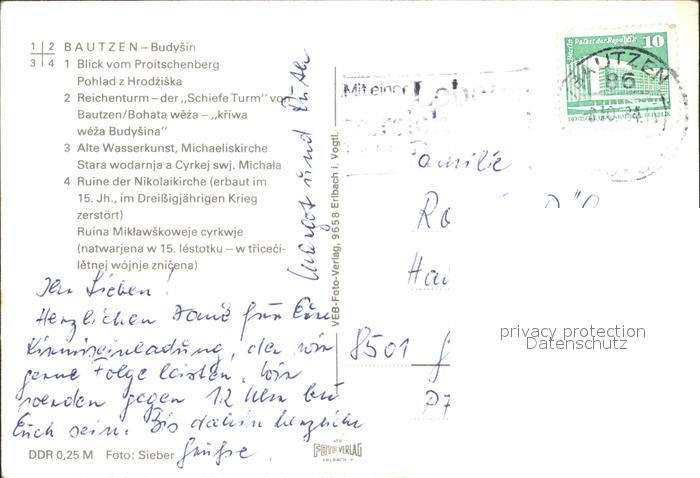 1 2 BAUTZEN – Budyšin
3 4 1 Blick vom Proitschenberg
Pohlad z Hrodźiška
2 Reichenturm – der „Schiefe Turm" vo
Bautzen/Bohata wěža – „křiwa
wěža Budyšina"
3 Alte Wasserkunst, Michaeliskirche
Stara wodarnja a Cyrkej swj. Michała
4 Ruine der Nikolaikirche (erbaut im
15. Jh., im Dreißigjährigen Krieg
zerstört)
Ruina Mikławškoweje cyrkwje
(natwarjena w 15. lěstotku – w třiceći-
lětnej wójnje zničena)
Ihr Lieben!
Herzlichen Dank für Eure
Kirmiseinladung, der wir
gerne Folge leisten. Wir
werden gegen 12 Uhr bei
Euch sein. Bis dahin herzliche
Grüße
Margot und
DDR 0,25 M Foto: Sieber
VEB-Foto-Verlag, 9658 Erlbach i. Vogtl.
VEB
FOTO VERLAG
ERLBACH·V
Mit einer
Berlin Palast der Republik 10
BAUTZEN
86
Familie
Ro
Ha
8501
privacy protection
Datenschutz